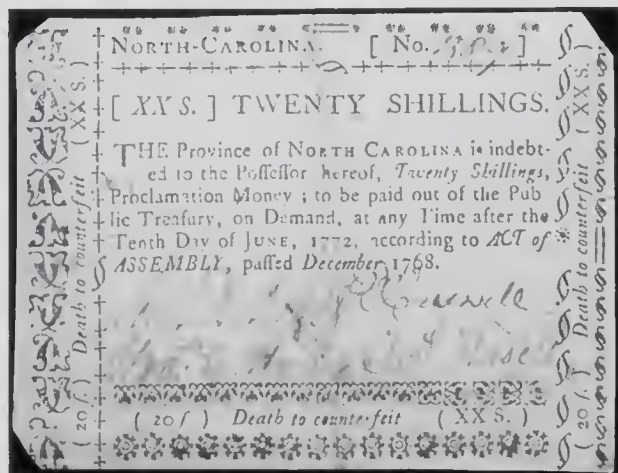 NORTH-CAROLINA. [ No. ]
[ XX S. ] TWENTY SHILLINGS.
THE Province of NORTH CAROLINA is indebt-
ed to the Poſſeſſor hereof, Twenty Shillings,
Proclamation Money ; to be paid out of the Pub
lic Treaſury, on Demand, at any Time after the
Tenth Day of JUNE, 1772, according to ACT of
ASSEMBLY, paſſed December, 1768.
( 20ſ ) Death to counterfeit ( XX S. )
( 20ſ ) Death to counterfeit (XX S.)
( 20ſ ) Death to counterfeit ( XX S. )